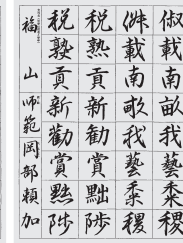 俶載南畝我藝黍稷
俶載南畝我藝黍稷
税熟貢新勸賞黜陟
税熟貢新勸賞黜陟
福山 師範 岡部頼加